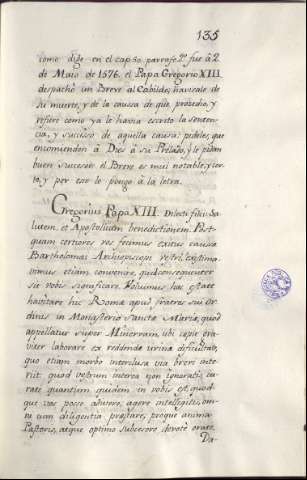 135
como dige en el cap.30. parrafo 2º fue á 2
de Maio de 1576. el Papa Gregorio XIII
despachó un Breve al Cabildo, havisale de
su muerte, y de la caussa de que procedio, y
refiere como ya le havia escrito la senten-
cia, y sucesso de aquella causa: pideles, que
encomienden á Dios á su Prelado, y le pidan
buen succesor. el Breve es mui notable, y cor-
to, y por eso le pongo á la letra.
Gregorius Papa XIII. Dilecti filii Sa-
lutem, et Apostolicam benedictionem. Post-
quam certiores vos fecimus exitus caussa
Bartholomai Archiepiscopi vestri, existima-
vimus etiam convenire, quid consequenter
sit vobis significare. Voluimus hac estate
habitare hic Roma apud fratres sui Or-
dinis in Monasterio Sancta Maria, quod
appellatur super Minervam, ubi cepit gra-
viter laborare ex reddenda urina dificultate,
quo etiam morbo interclusa via brevi inte-
riit quod vostrum interea non ignoratis, cu-
rate quantum quidem in vobis est, quod-
que vos posse adniti, agere intelligitis, om-
ni cum diligentia prestare, proque anima
Pastoris, atque optimo subcesore devote orate.
Da-